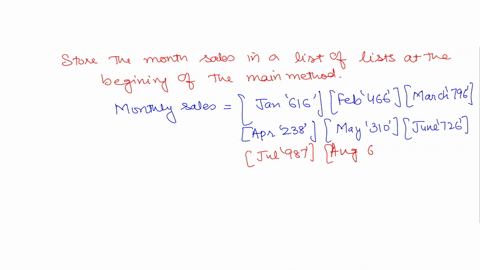 Store the month sales in a list of lists at the
begining of the main method.
Monthly sales = [Jan '616'] [Feb '466'] [March '796']
[Apr '238'] [May '310'] [June '726']
[Jul '987'] [Aug 6